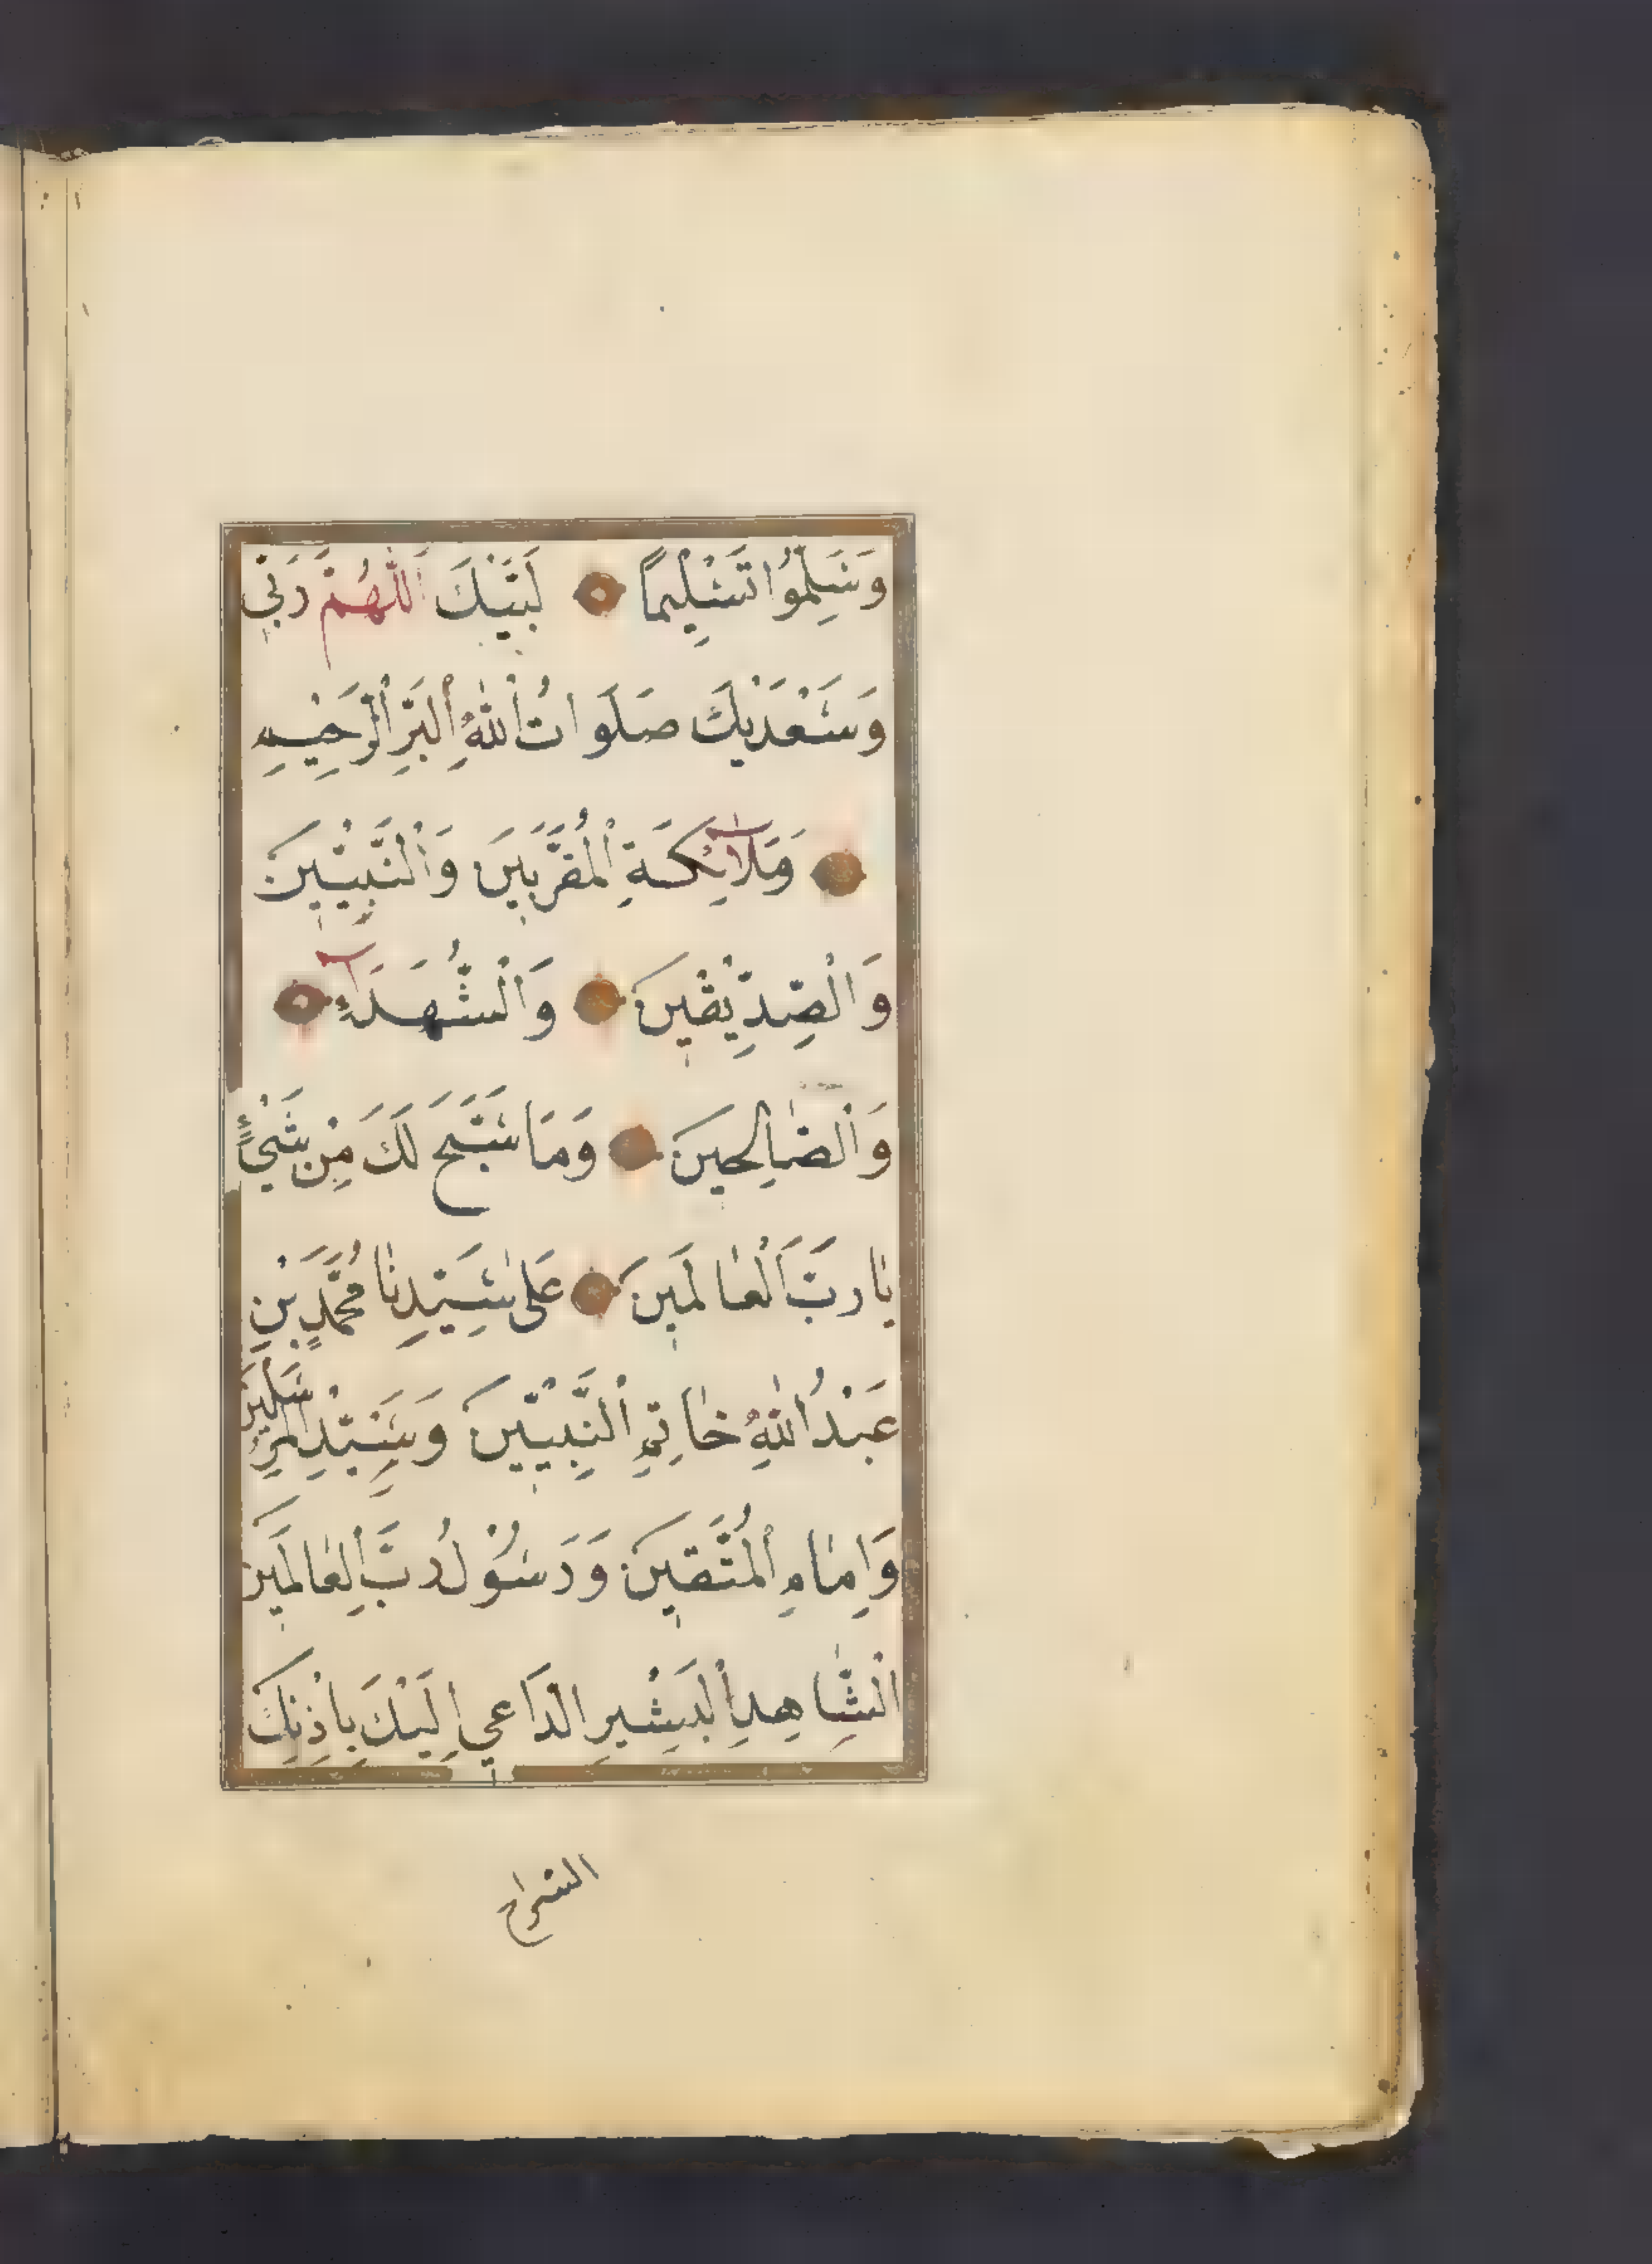 وَسَلِّمُوا تَسْلِيمًا لَبَّيْكَ اَللّٰهُمَّ رَبِّي
وَسَعْدَيْكَ صَلَوَاتُ اللّٰهِ الْبَرِّ الْرَحِيْمِ
وَمَلَآئِكَةِ الْمُقَرَّبِينَ وَالْنَّبِيّيْنَ
وَالْصِّدِّيْقِيْنَ وَالْشُّهَدَآءِ
وَالْصَّالِحِينَ وَمَا سَبَّحَ لَكَ مِنْ شَيْءٍ
يَا رَبَّ الْعَالَمِينَ عَلٰى سَيِّدِنَا مُحَمَّدٍ بْنِ
عَبْدُ اللّٰهِ خَاتِمِ الْنَّبِيّيْنَ وَسَيِّدِ الْمُرْسَلِيْنَ
وَاِمَامِ الْمُتَّقِينَ وَرَسُوْلُ رَبِّ الْعَالَمِينَ
الْشَّاهِدِ الْبَشِيْرِ الْدَاعِي اِلَيْكَ بِاِذْنِكَ
السراج